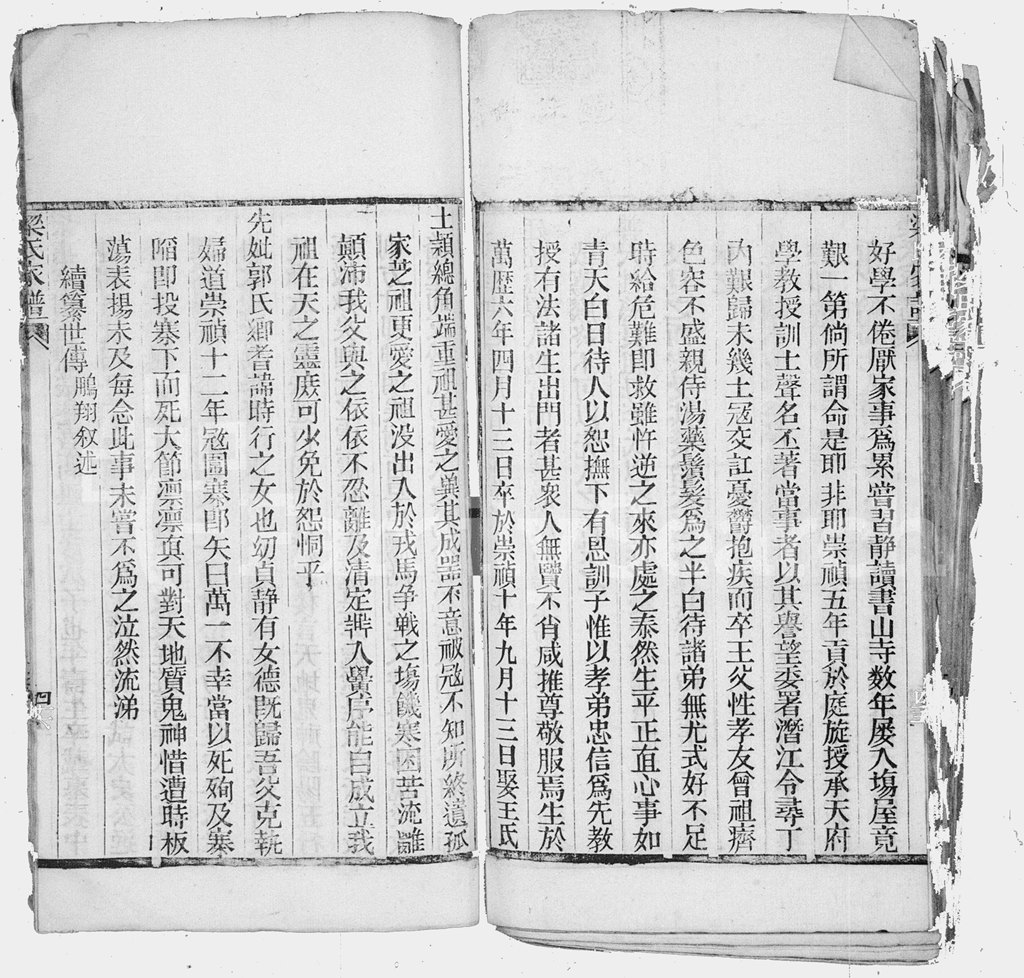 好學不倦厭家事爲累嘗習静讀書山寺数年屡入塲屋竟
艱一第倘所謂命是耶非耶崇禎五年貢於庭旋授承天府
學教授訓士聲名丕著當事者以其譽望委署潛江令尋丁
内艱歸未幾土冦交訌憂鬱抱疾而卒王父性孝友曾祖癠
色容不盛親侍湯藥鬚髮爲之半白待諸弟無尤式好不足
時給危難即救雖忤逆之來亦處之泰然生平正直心事如
青天白日待人以恕撫下有恩訓子惟以孝弟忠信爲先教
授有法諸生出門者甚衆人無賢不肖咸推尊敬服焉生於
萬歷六年四月十三日卒於崇禎十年九月十三日娶王氏
士穎總角端重祖甚愛之兾其成器不意被冦不知所終遺孤
家芝祖更愛之祖没出入於戎馬争戰之塲饑寒困苦流離
顛沛我父與之依依不忍離及清定
人翼居能自成立我
祖在天之靈庶可少免於怨恫乎
先妣郭氏卿耆諱時行之女也幼貞静有女德既歸吾父克執
婦道崇禎十二年冦圍寨即矢曰萬一不幸當以死殉及寨
陷即投寨下而死大節凛凛真可對天地質鬼神惜遭時板
蕩表揚未及每念此事未嘗不爲之泣然流涕
續纂世傳 鵬翔叙述
梁氏家譜
四